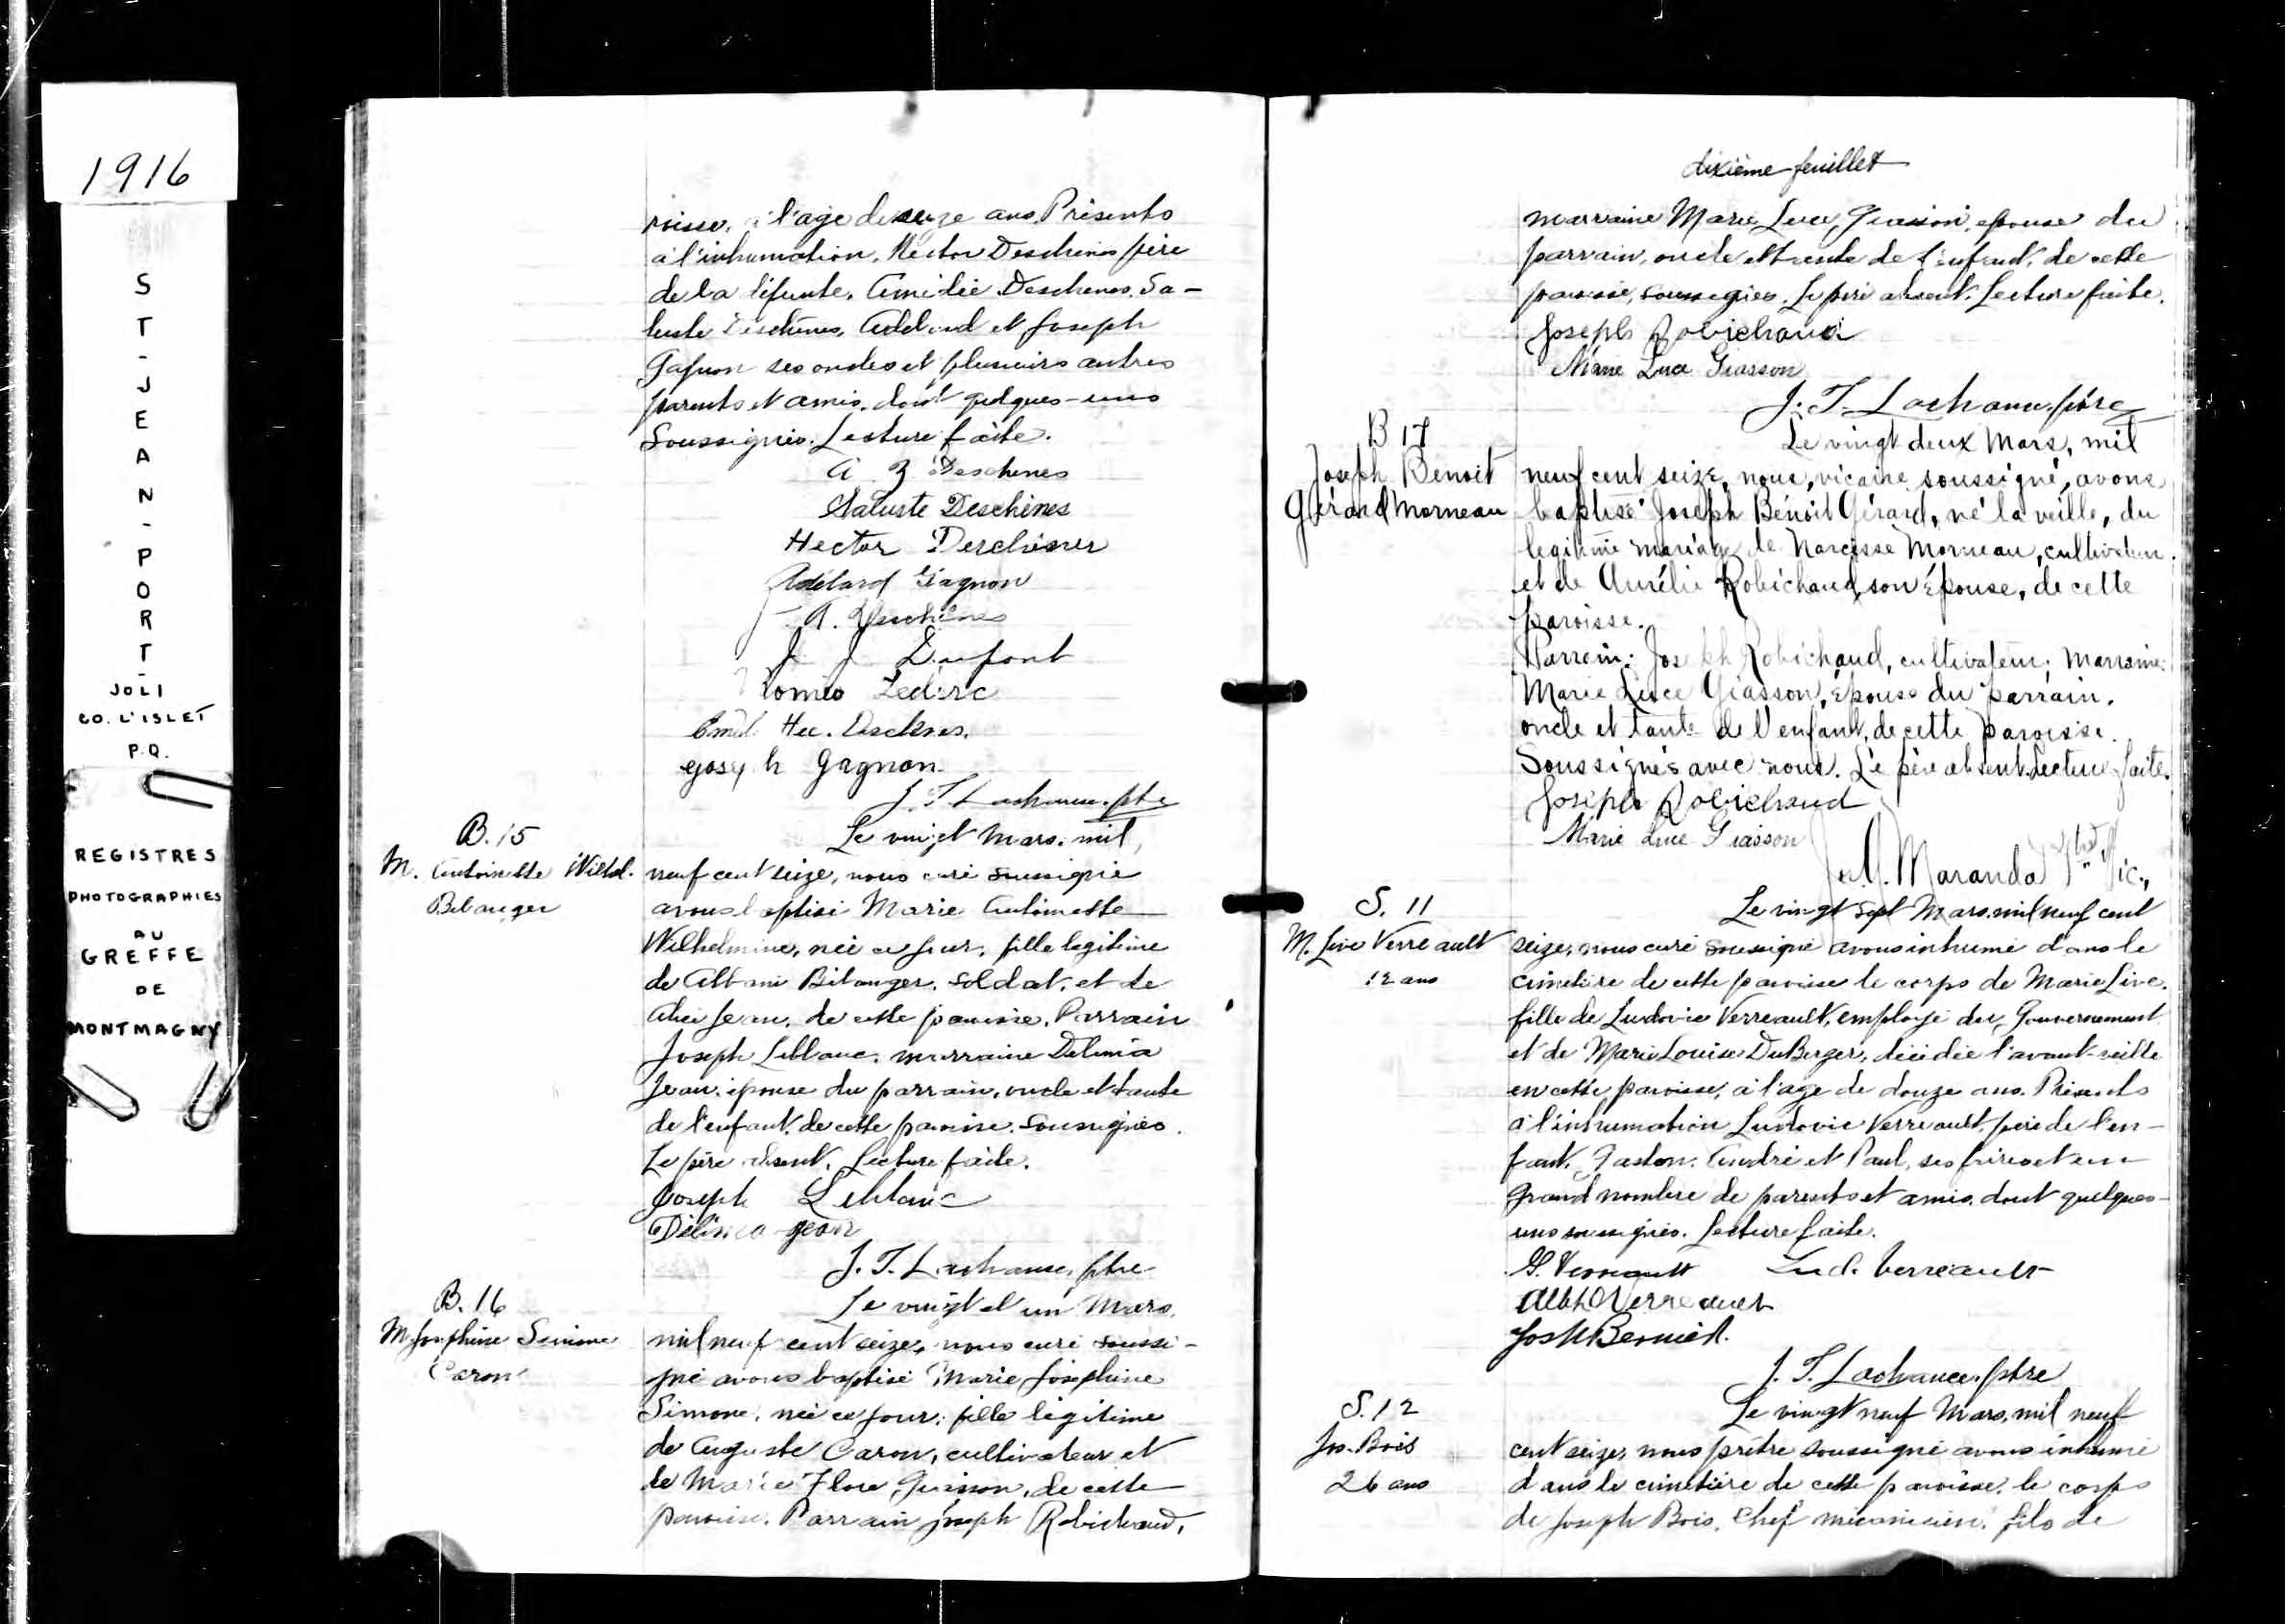 1916
ST-JEAN-PORT-
JOLI
CO. L'ISLET
P.Q.
REGISTRES
PHOTOGRAPHIES
AU
GREFFE
DE
MONTMAGNY
roisse, à l'age de ans Présents
à l'inhumation, Hector Deschênes père
de la défunte, Amédée Deschenes, Sa-
luste Deschênes, Adélard et Joseph
Gagnon ses oncles et plusieurs autres
parents et amis, dont quelques-uns
Soussignés. Lecture faite.
A Z Deschenes
Saluste Deschênes
Hector Deschênes
Adélard Gagnon
A. Deschênes
J J Dupont
Roméo Leclerc
Hec. Deschenes.
Joseph Gagnon
J. T. Lachance, ptre
B. 15
M. Antoinette Wilhel.
Bélanger
Le vingt Mars, mil
neuf cent seize, nous curé soussigné
avons baptisé Marie Antoinette
Wilhelmine, née ce jour, fille légitime
de Albani Bélanger, soldat, et de
Jean, de cette paroisse. Parrain
Joseph Leblanc, marraine Délima
Jean, épouse du parrain, oncle et tante
de l'enfant, de cette paroisse, soussignés.
Le père absent. Lecture faite.
Joseph Leblanc
Délima Jean
J. T. Lachance, ptre
B. 16
M. Josephine Simone
Caron
Le vingt et un Mars,
mil neuf cent seize, nous curé soussi-
gné avons baptisé Marie Joséphine
Simone, née ce jour, fille légitime
de Auguste Caron, cultivateur et
de Marie Flore Giasson, de cette
paroisse. Parrain Joseph Robichaud,
dixième feuillet
marraine Marie Luce Giasson, épouse du
parrain, oncle et tante de l'enfant, de cette
paroisse, soussignés. Le père absent. Lecture faite.
Joseph Robichaud
Marie Luce Giasson
J. T. Lachance, ptre
B 17
Joseph Benoit
Gérard Morneau
Le vingt deux Mars, mil
neuf cent seize, nous, vicaire soussigné, avons
baptisé Joseph Benoit Gérard, né la veille, du
légitime mariage de Narcisse Morneau, cultivateur
et de Aurélie Robichaud, son épouse, de cette
paroisse.
Parrain: Joseph Robichaud, cultivateur; Marraine:
Marie Luce Giasson, épouse du parrain,
oncle et tante de l'enfant, de cette paroisse.
Soussignés avec nous. Le père absent. Lecture faite.
Joseph Robichaud
Marie Luce Giasson
Maranda Ptre Vic.,
S. 11
M. Live Verreault
12 ans
Le vingt sept Mars, mil neuf cent
seize, nous curé soussigné avons inhumé dans le
cimetière de cette paroisse le corps de Marie Live,
fille de Ludovic Verreault, employé du Gouvernement
et de Marie Louise DuBerger, décédée l'avant-veille
en cette paroisse, à l'age de douze ans. Présents
à l'inhumation Ludovic Verreault, père de l'en-
fant, Gaston, André et Paul, ses frères et un
grand nombre de parents et amis, dont quelques-
uns soussignés. Lecture faite.
G. Verreault Lud. Verreault
Verreault
Jos Bernier.
J. T. Lachance, ptre
S. 12
Jos. Bois
26 ans
Le vingt neuf Mars, mil neuf
cent seize, nous prêtre soussigné avons inhumé
dans le cimetière de cette paroisse, le corps
de Joseph Bois, Chef mécanicien, fils de